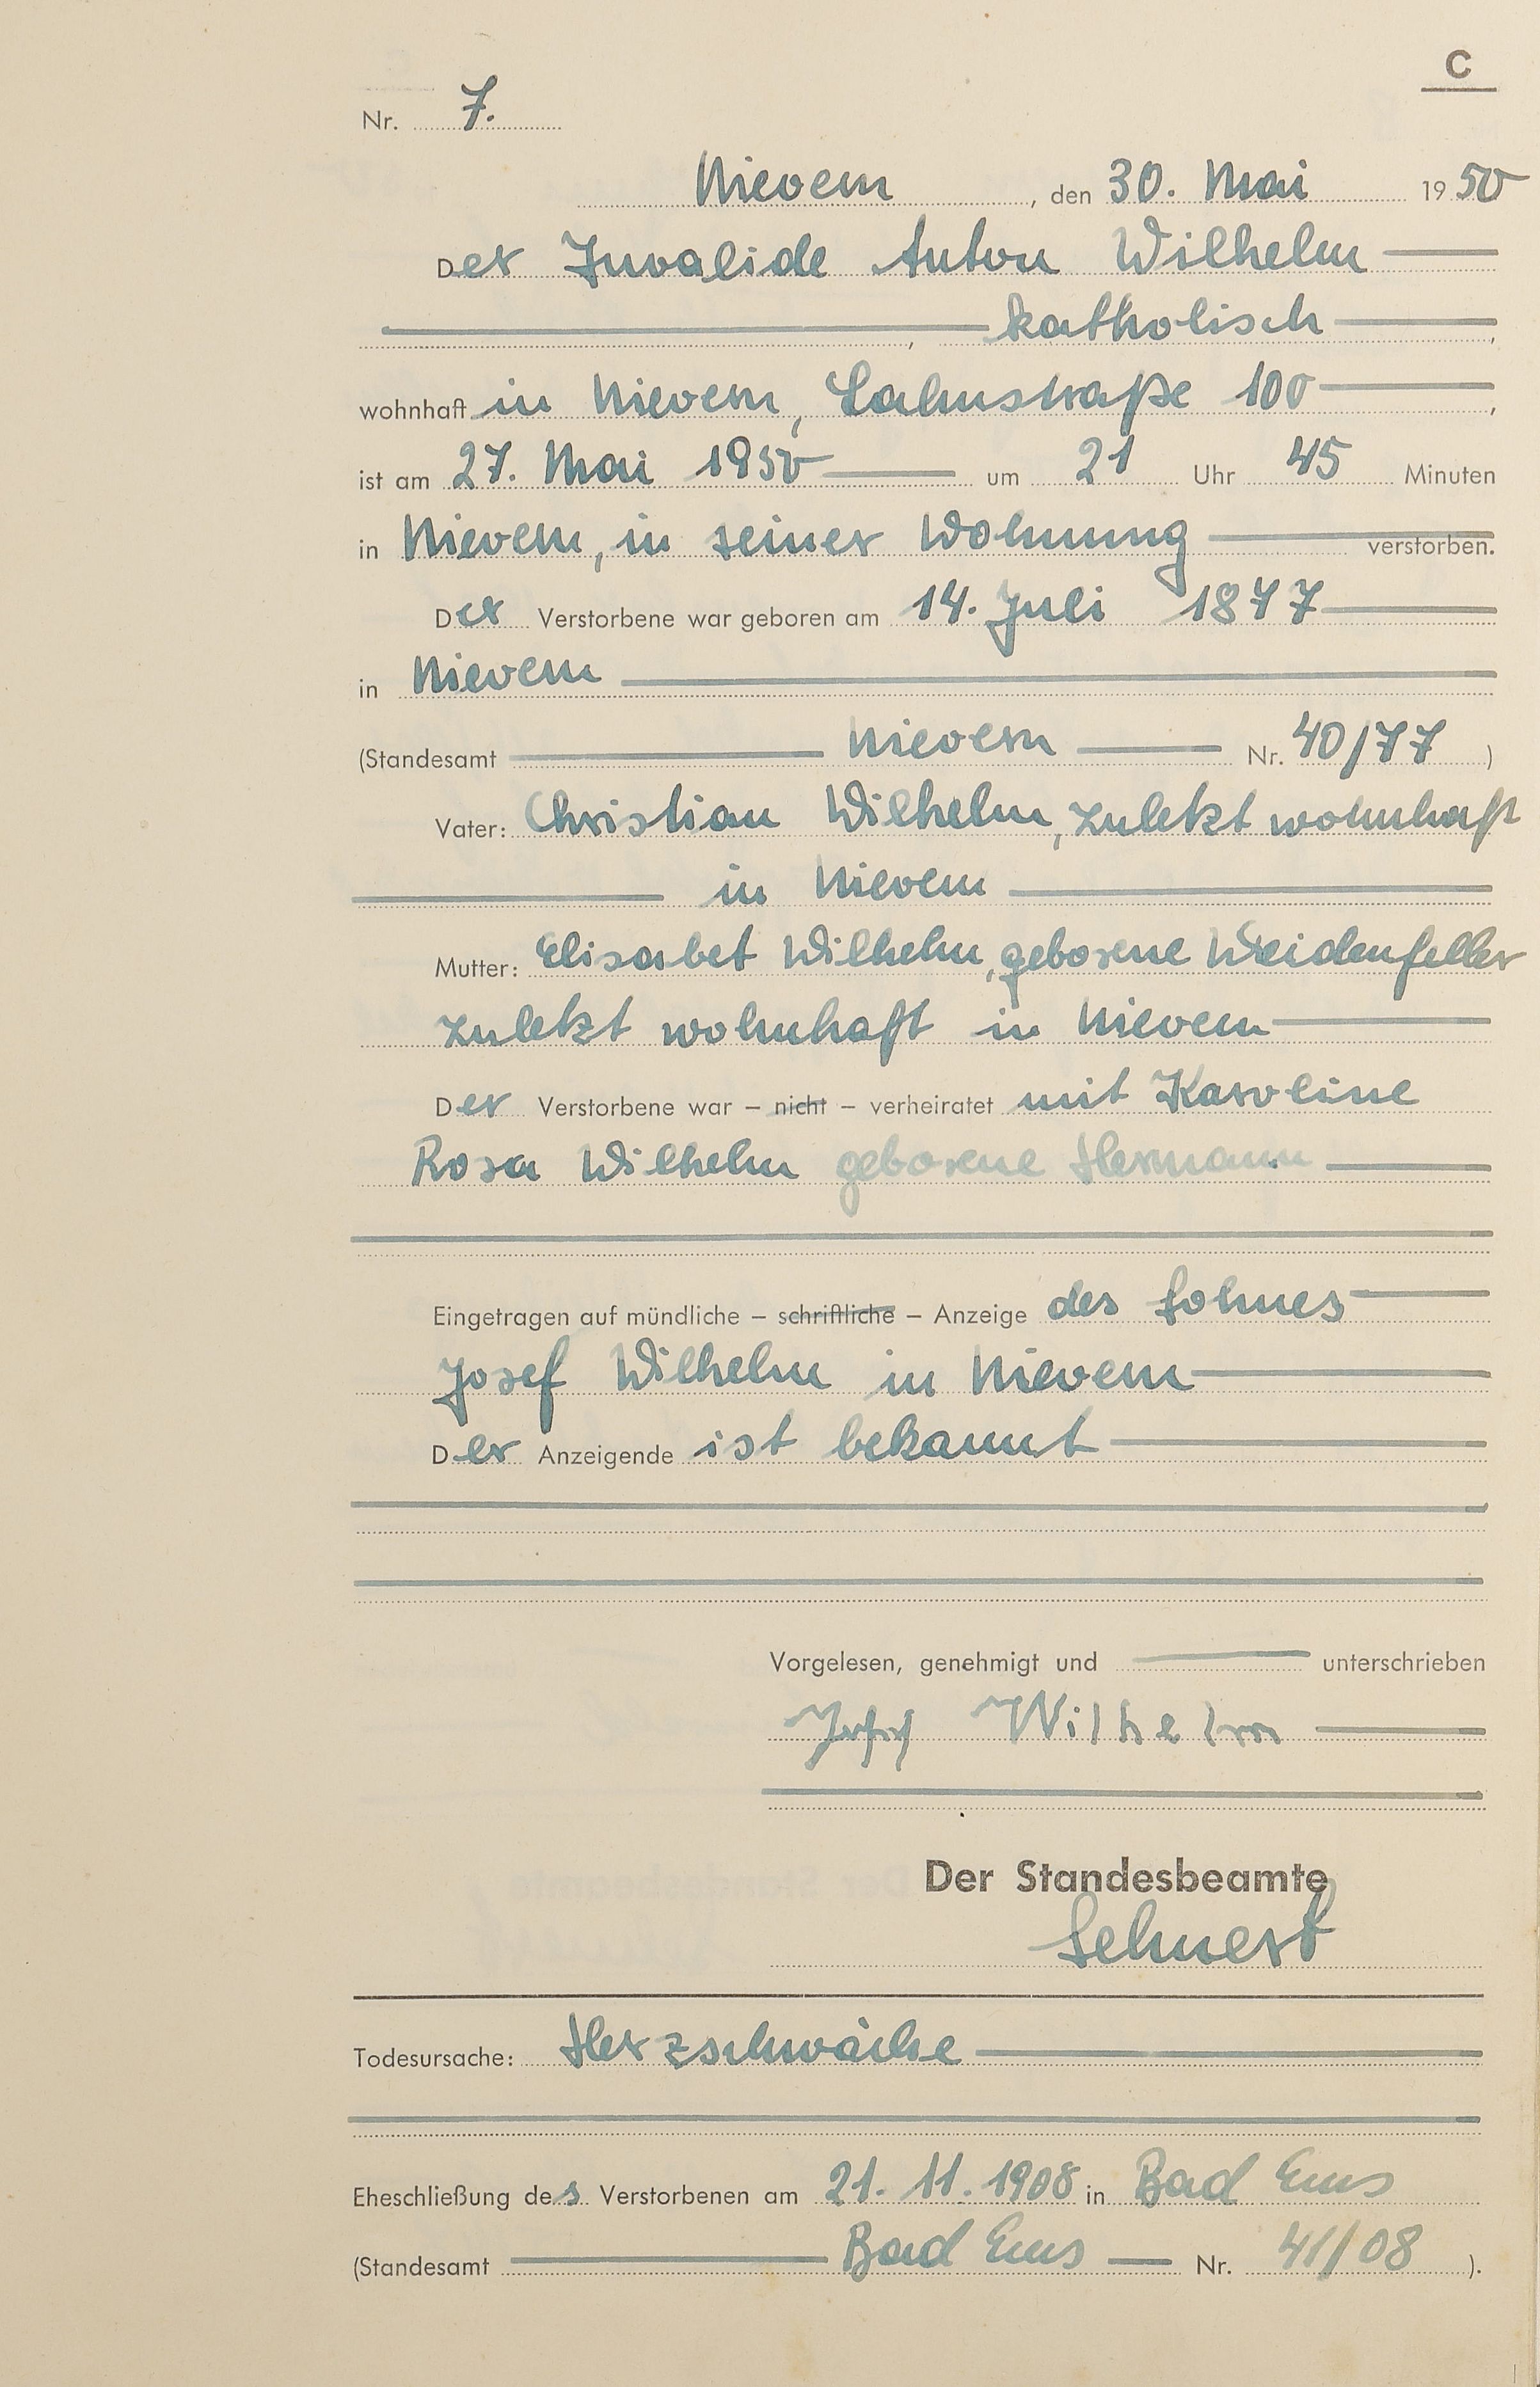 C
Nr. 7.
Nievern, den 30. Mai 1950
Der Invalide Anton Wilhelm
, katholisch,
wohnhaft in Nievern, Lahnstraße 100,
ist am 27. Mai 1950 um 21 Uhr 45 Minuten
in Nievern, in seiner Wohnung verstorben.
Der Verstorbene war geboren am 14. Juli 1877
in Nievern
(Standesamt Nievern Nr. 40/77)
Vater: Christian Wilhelm, zuletzt wohnhaft
in Nievern
Mutter: Elisabet Wilhelm, geborene Weidenfeller
zuletzt wohnhaft in Nievern
Der Verstorbene war – nicht – verheiratet mit Karoline
Rosa Wilhelm geborene Hermann
Eingetragen auf mündliche – schriftliche – Anzeige des Sohnes
Josef Wilhelm in Nievern
Der Anzeigende ist bekannt
Vorgelesen, genehmigt und unterschrieben
Josef Wilhelm
Der Standesbeamte
Lehnert
Todesursache: Herzschwäche
Eheschließung des Verstorbenen am 21. 11. 1908 in Bad Ems
(Standesamt Bad Ems Nr. 41/08).